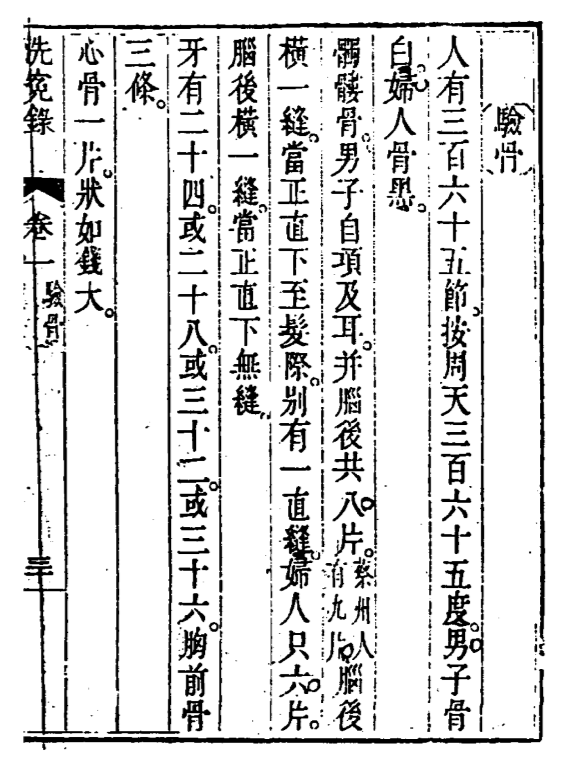 驗骨
人有三百六十五節。按周天三百六十五度。男子骨
白。婦人骨黑。
髑髏骨。男子自項及耳。并腦後共八片。蔡州人有九片。腦後
橫一縫。當正直下至髮際。別有一直縫。婦人只六片。
腦後橫一縫。當正直下無縫。
牙有二十四。或二十八。或三十二。或三十六。胸前骨
三條。
心骨一片。狀如錢大。
洗冤錄 卷一 驗骨 三